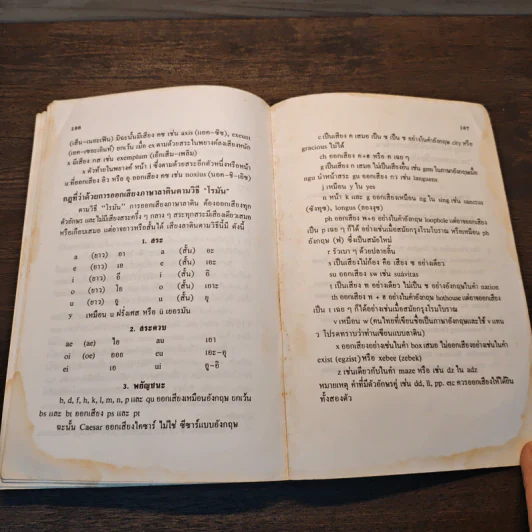 186
(เส็น-เนอะเฟิน) มิฉะนั้นมีเสียง คซ เช่น axis (แอค-ซิซ), exeunt
(เอค-เซอะเอินท์) ยกเว้น เมื่อ ex ตามด้วยสระในพยางค์ลงเสียงหนัก
x มีเสียง กส เช่น exemptum (เอ็กเส็ม-เพลิม)
x ตัวท้ายในพยางค์ หน้า i ซึ่งตามด้วยสระอีกตัวหนึ่งหรือหน้า
u ที่ออกเสียง อิว หรือ ยู ออกเสียง คช เช่น noxius (นอค-ชิ-เอิช)
กฎที่ว่าด้วยการออกเสียงภาษาลาตินตามวิธี "โรมัน"
ตามวิธี "โรมัน" การออกเสียงภาษาลาติน ต้องออกเสียงทุก
ตัวอักษร และไม่มีสระครึ่ง ๆ กลาง ๆ สระทุกสระมีเสียงเดียวเสมอ
หรือเกือบเสมอ แต่อาจยาวหรือสั้นได้ เสียงลาตินตามวิธีนี้มี ดังนี้
1. สระ
a (ยาว) อา a (สั้น) อะ
e (ยาว) เอ e (สั้น) เอะ
i (ยาว) อี i (สั้น) อิ
o (ยาว) โอ o (สั้น) เอาะ
u (ยาว) อู u (สั้น) อุ
y เหมือน u ฝรั่งเศส หรือ ü เยอรมัน
2. สระควบ
ae (æ) ไอ au เอา
oi (oe) ออย eu เอะ-อุ
ei เอ ui อุ-อิ
3. พยัญชนะ
b, d, f, h, k, l, m, n, p และ qu ออกเสียงเหมือนอังกฤษ ยกเว้น
bs และ bt ออกเสียง ps และ pt
ฉะนั้น Caesar ออกเสียงไคซาร์ ไม่ใช่ ซีซาร์แบบอังกฤษ
187
c เป็นเสียง ค เสมอ เป็น ซ เป็น ช อย่างในคำอังกฤษ city หรือ
gracious ไม่ได้
ch ออกเสียง ค+ฮ หรือ ค เฉย ๆ
g เป็นเสียง ก เสมอ ไม่เป็นเสียงอื่น เช่น gem ในภาษาอังกฤษเมื่อ
ngu นำหน้าสระ gu ออกเสียง กว เช่น languens
j เหมือน y ใน yes
n หน้า k และ g ออกเสียงเหมือน ng ใน sing เช่น
longus (ลองงุซ)
ph ออกเสียง พ+ฮ อย่างในคำอังกฤษ loophole แต่อาจออกเสียง
เป็น p เฉย ๆ ก็ได้ อย่างเช่นเมื่อสมัยกรุงโรมโบราณ หรือเหมือน ph
อังกฤษ (ฟ) ซึ่งเป็นสมัยใหม่
r รัวเบา ๆ ด้วยปลายลิ้น
s เป็นเสียงไม่ก้อง คือ เสียง ซ อย่างเดียว
su ออกเสียง sw เช่น suāvitas
t เป็นเสียง ท อย่างเดียว ไม่เป็น ช อย่างอังกฤษในคำ nation
th ออกเสียง ท + ฮ อย่างในคำอังกฤษ hothouse แต่อาจออกเสียง
เป็น t เฉย ๆ ก็ได้อย่างเช่นเมื่อสมัยกรุงโรมโบราณ
v เหมือน w (คนไทยที่เขียนชื่อเป็นภาษาอังกฤษและใช้ v แทน
ว โปรดทราบว่าท่านเขียนแบบลาติน)
x ออกเสียงเหมือนอย่างในคำ box เสมอ ไม่ออกเสียงอย่างเช่นในคำ
exist (egzist) หรือ xebec (zebek)
z เช่นเดียวกับในคำ maze หรือ เช่น dz ใน adz
หมายเหตุ คำที่มีตัวอักษรคู่ เช่น dd, ll, pp. etc ควรออกเสียงให้ได้ยิน
ทั้งสองตัว